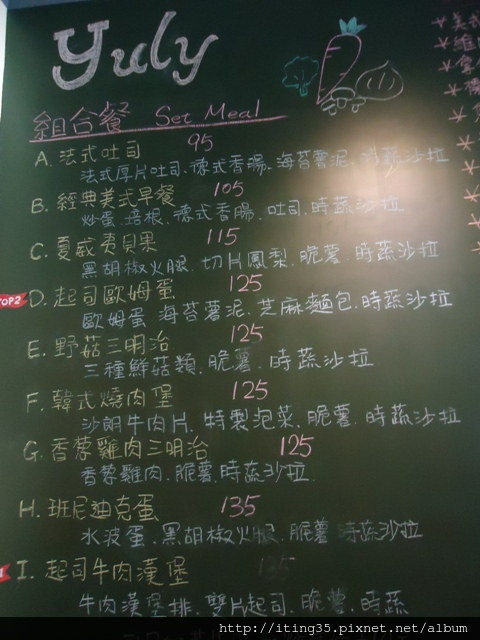 Yuly
組合餐 Set Meal
A. 法式吐司 95
法式厚片吐司、德式香腸、海苔薯泥、時蔬沙拉
B. 經典美式早餐 105
炒蛋、培根、德式香腸、吐司、時蔬沙拉
C. 夏威夷貝果 115
黑胡椒火腿、切片鳳梨、脆薯、時蔬沙拉
TOP2 D. 起司歐姆蛋 125
歐姆蛋、海苔薯泥、芝麻麵包、時蔬沙拉
E. 野菇三明治 125
三種鮮菇類、脆薯、時蔬沙拉
F. 韓式燒肉堡 125
沙朗牛肉片、特製泡菜、脆薯、時蔬沙拉
G. 香蓼雞肉三明治 125
香蓼雞肉、脆薯、時蔬沙拉
H. 班尼迪克蛋 135
水波蛋、黑胡椒火腿、脆薯、時蔬沙拉
I. 起司牛肉漢堡
牛肉漢堡排、雙片起司、脆薯、時蔬
http://iting35.pixnet.net/album